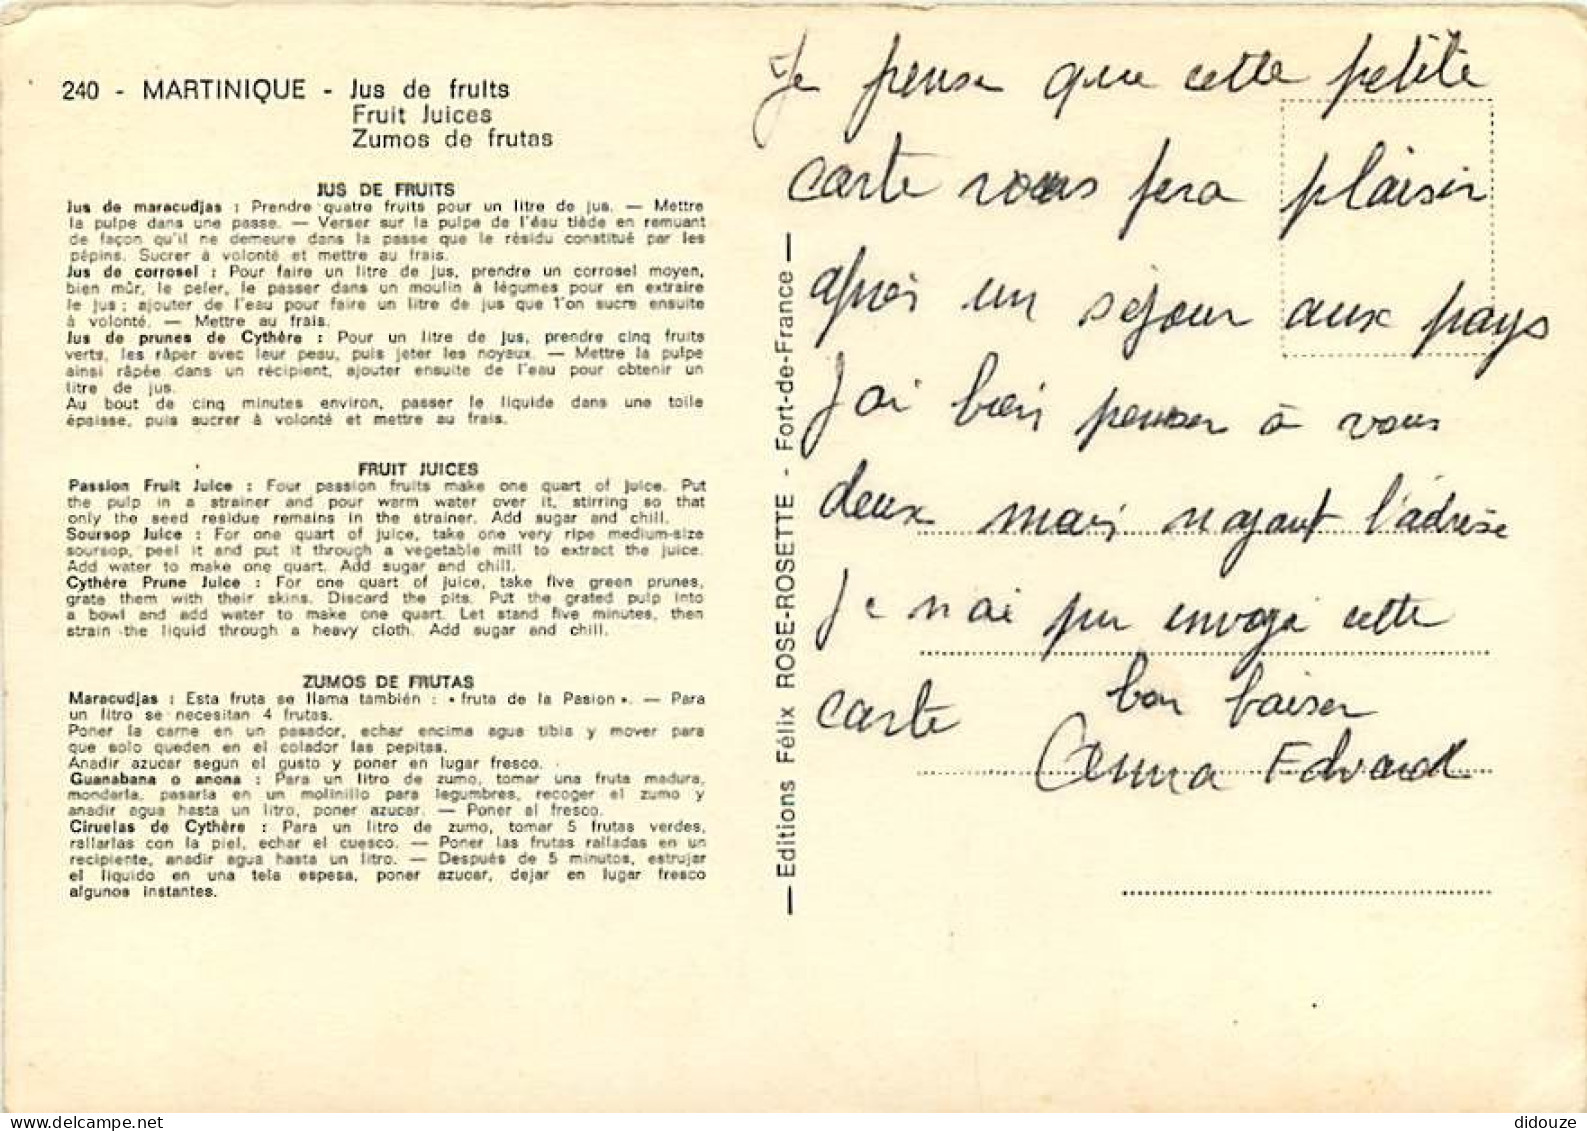 240 - MARTINIQUE - Jus de fruits
Fruit Juices
Zumos de frutas
JUS DE FRUITS
Jus de maracudjas : Prendre quatre fruits pour un litre de jus. — Mettre
la pulpe dans une passe. — Verser sur la pulpe de l'éau tiède en remuant
de façon qu'il ne demeure dans la passe que le résidu constitué par les
pépins. Sucrer à volonté et mettre au frais.
Jus de corrosel : Pour faire un litre de jus, prendre un corrosel moyen,
bien mûr, le peler, le passer dans un moulin à légumes pour en extraire
le jus ; ajouter de l'eau pour faire un litre de jus que l'on sucre ensuite
à volonté. — Mettre au frais.
Jus de prunes de Cythère : Pour un litre de jus, prendre cinq fruits
verts, les râper avec leur peau, puis jeter les noyaux. — Mettre la pulpe
ainsi râpée dans un récipient, ajouter ensuite de l'eau pour obtenir un
litre de jus.
Au bout de cinq minutes environ, passer le liquide dans une toile
épaisse, puis sucrer à volonté et mettre au frais.
FRUIT JUICES
Passion Fruit Juice : Four passion fruits make one quart of juice. Put
the pulp in a strainer and pour warm water over it, stirring so that
only the seed residue remains in the strainer. Add sugar and chill.
Soursop Juice : For one quart of juice, take one very ripe medium-size
soursop, peel it and put it through a vegetable mill to extract the juice.
Add water to make one quart. Add sugar and chill.
Cythère Prune Juice : For one quart of juice, take five green prunes,
grate them with their skins. Discard the pits. Put the grated pulp into
a bowl and add water to make one quart. Let stand five minutes, then
strain the liquid through a heavy cloth. Add sugar and chill.
ZUMOS DE FRUTAS
Maracudjas : Esta fruta se llama también : « fruta de la Pasion ». — Para
un litro se necesitan 4 frutas.
Poner la carne en un pasador, echar encima agua tibia y mover para
que solo queden en el colador las pepitas.
Anadir azucar segun el gusto y poner en lugar fresco.
Guanabana o anona : Para un litro de zumo, tomar una fruta madura,
mondarla, pasarla en un molinillo para legumbres, recoger el zumo y
anadir agua hasta un litro, poner azucar. — Poner al fresco.
Ciruelas de Cythère : Para un litro de zumo, tomar 5 frutas verdes,
rallarlas con la piel, echar el cuesco. — Poner las frutas ralladas en un
recipiente, anadir agua hasta un litro. — Después de 5 minutos, estrujar
el liquido en una tela espesa, poner azucar, dejar en lugar fresco
algunos instantes.
— Editions Félix ROSE-ROSETTE - Fort-de-France —
Je pense que cette petite
carte vous fera plaisir
après un séjour aux pays
J'ai bien penser à vous
deux mais n'ayant l'adrèse
Je n'ai pu envoyé cette
carte bon baiser
Emma Edward
didouze